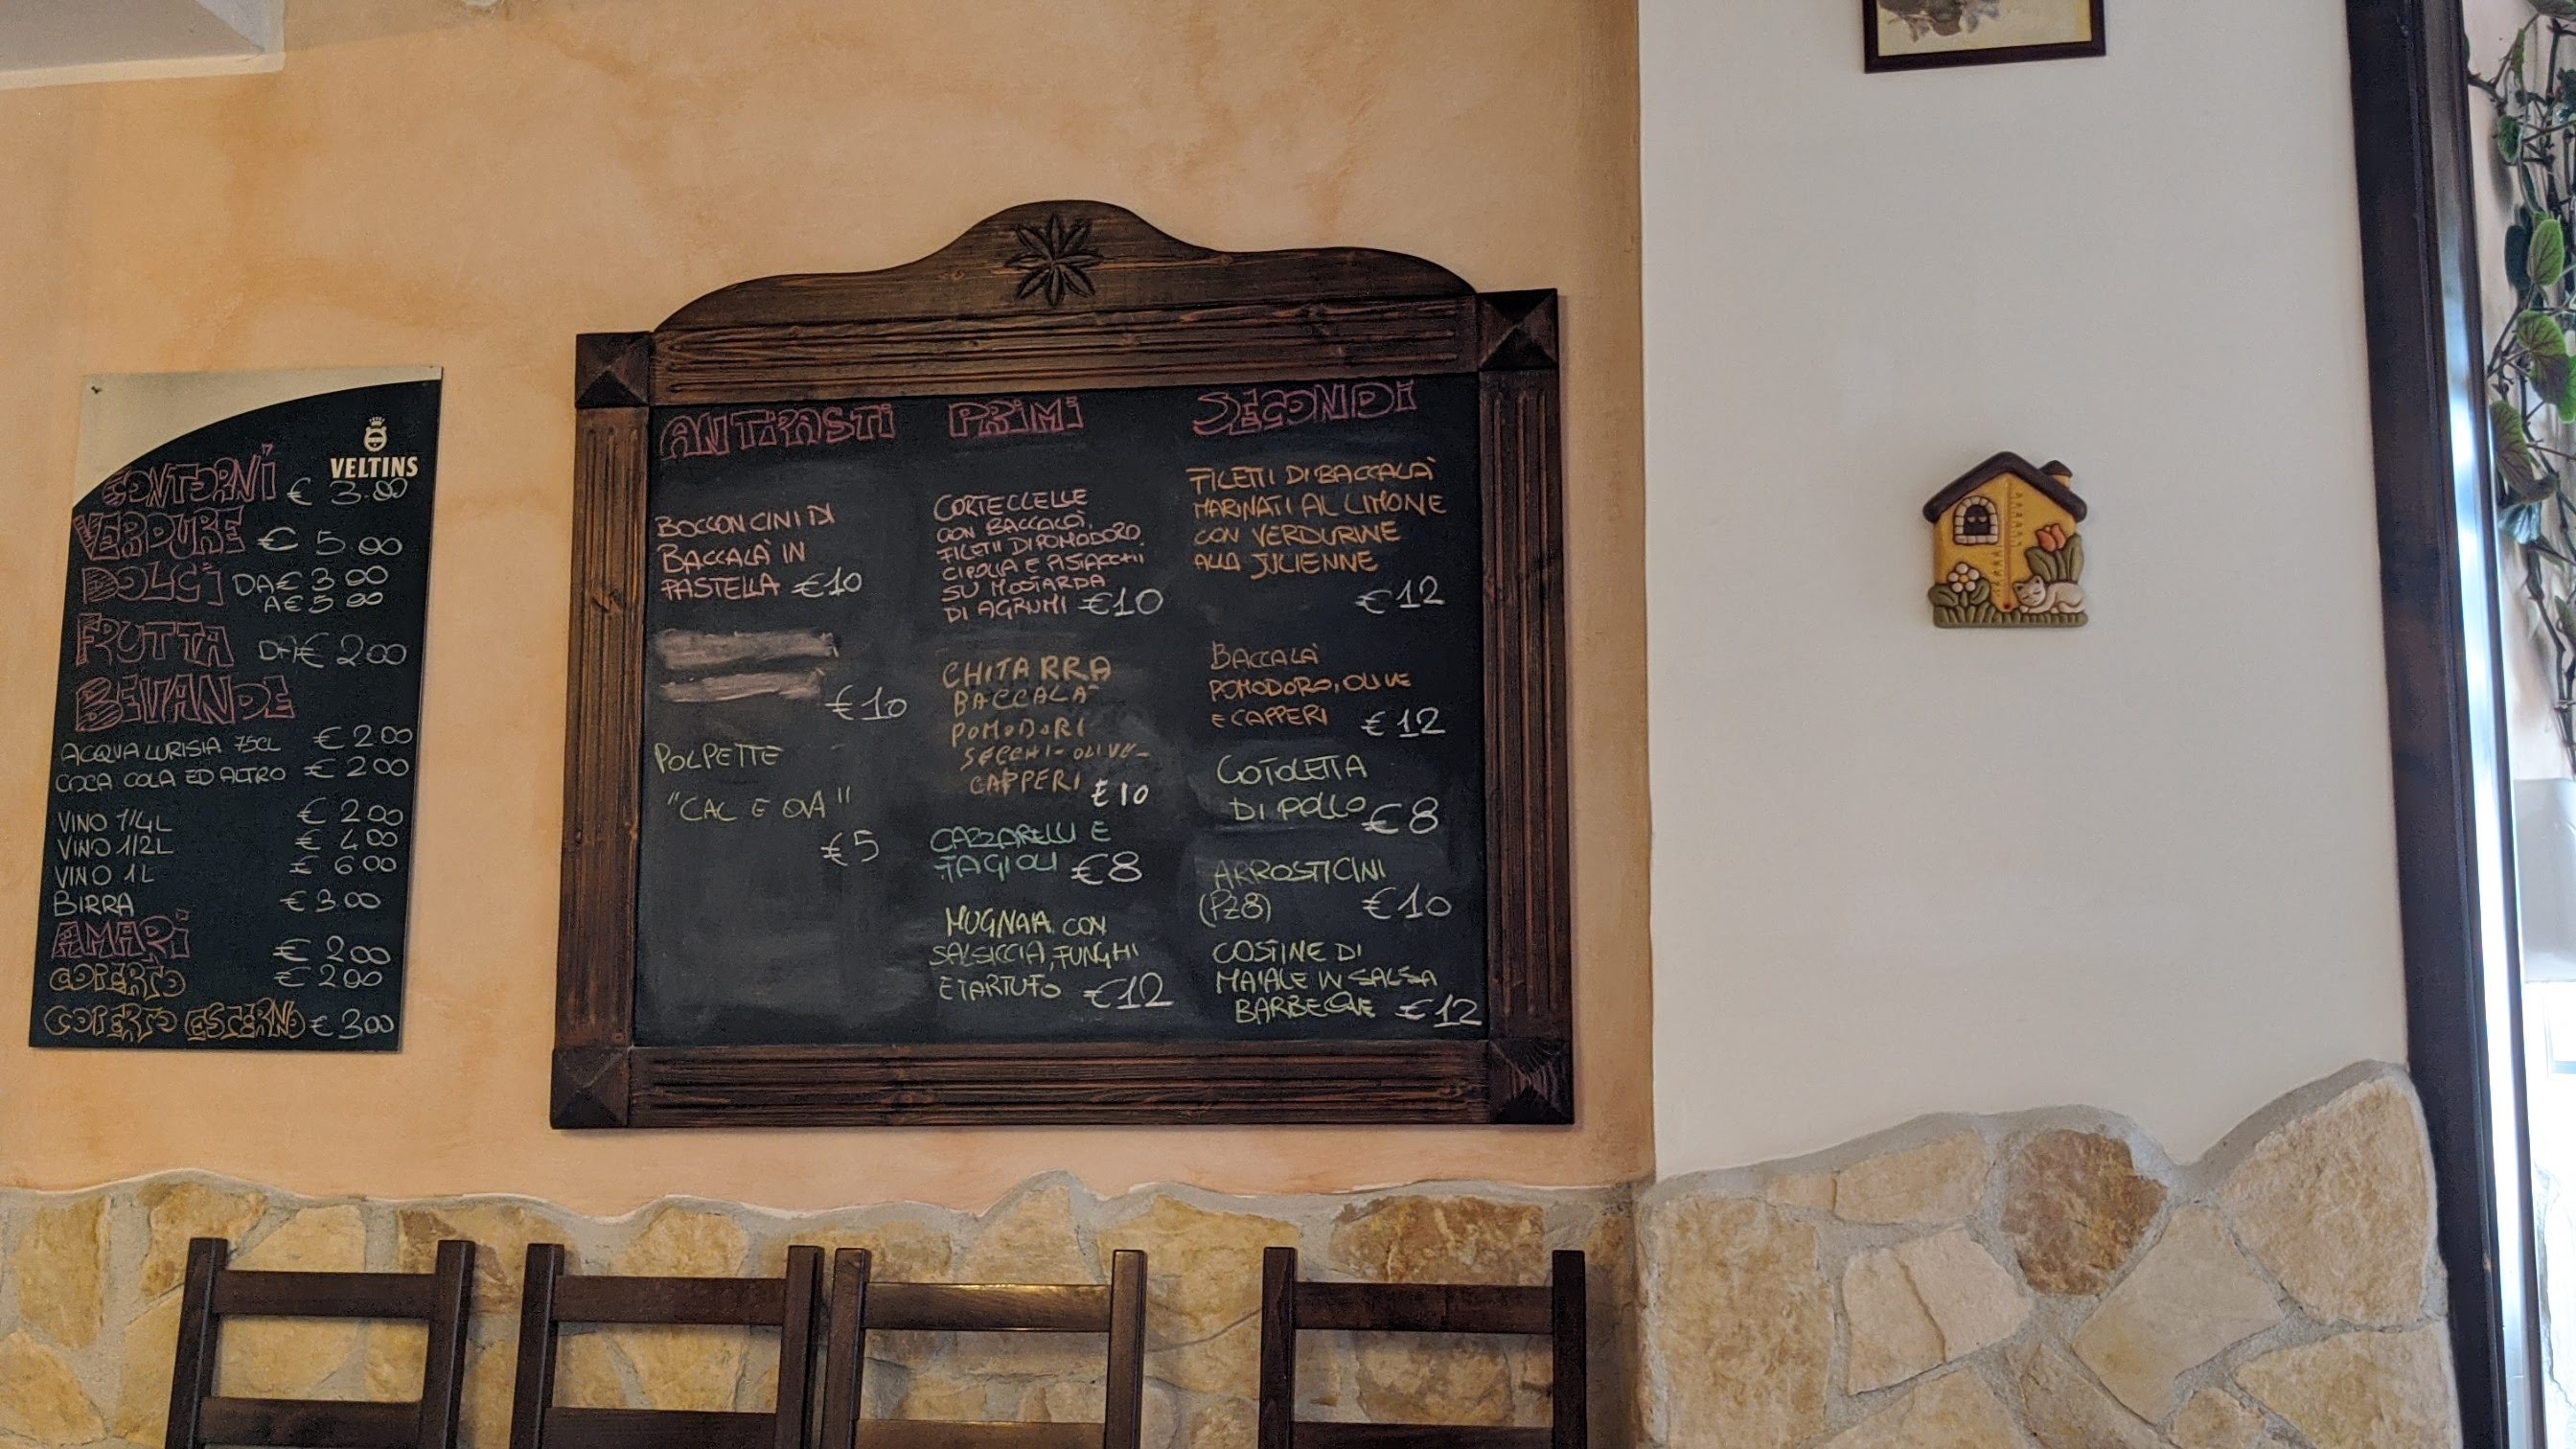 VELTINS
CONTORNI € 3.00
VERDURE € 5.00
DOLCI DA € 3.00
A € 5.00
FRUTTA DA € 2.00
BEVANDE
ACQUA LURISIA 75CL € 2.00
COCA COLA ED ALTRO € 2.00
VINO 1/4L € 2.00
VINO 1/2L € 4.00
VINO 1L € 6.00
BIRRA € 3.00
AMARI € 2.00
COPERTO € 2.00
COPERTO ESTERNO € 3.00
ANTIPASTI
BOCCONCINI DI
BACCALÀ IN
PASTELLA €10
€10
POLPETTE
"CAL E OVA"
€5
PRIMI
CORTECCELLE
CON BACCALÀ,
FILETTI DI POMODORO,
CIPOLLA E PISTACCHI
SU MOSTARDA
DI AGRUMI €10
CHITARRA
BACCALÀ
POMODORI
SECCHI-OLIVE-
CAPPERI €10
CAZZARELLI E
FAGIOLI €8
MUGNAIA CON
SALSICCIA, FUNGHI
E TARTUFO €12
SECONDI
FILETTI DI BACCALÀ
MARINATI AL LIMONE
CON VERDURINE
ALLA JULIENNE
€12
BACCALÀ
POMODORO, OLIVE
E CAPPERI €12
COTOLETTA
DI POLLO €8
ARROSTICINI
(PZ8) €10
COSTINE DI
MAIALE IN SALSA
BARBECUE €12